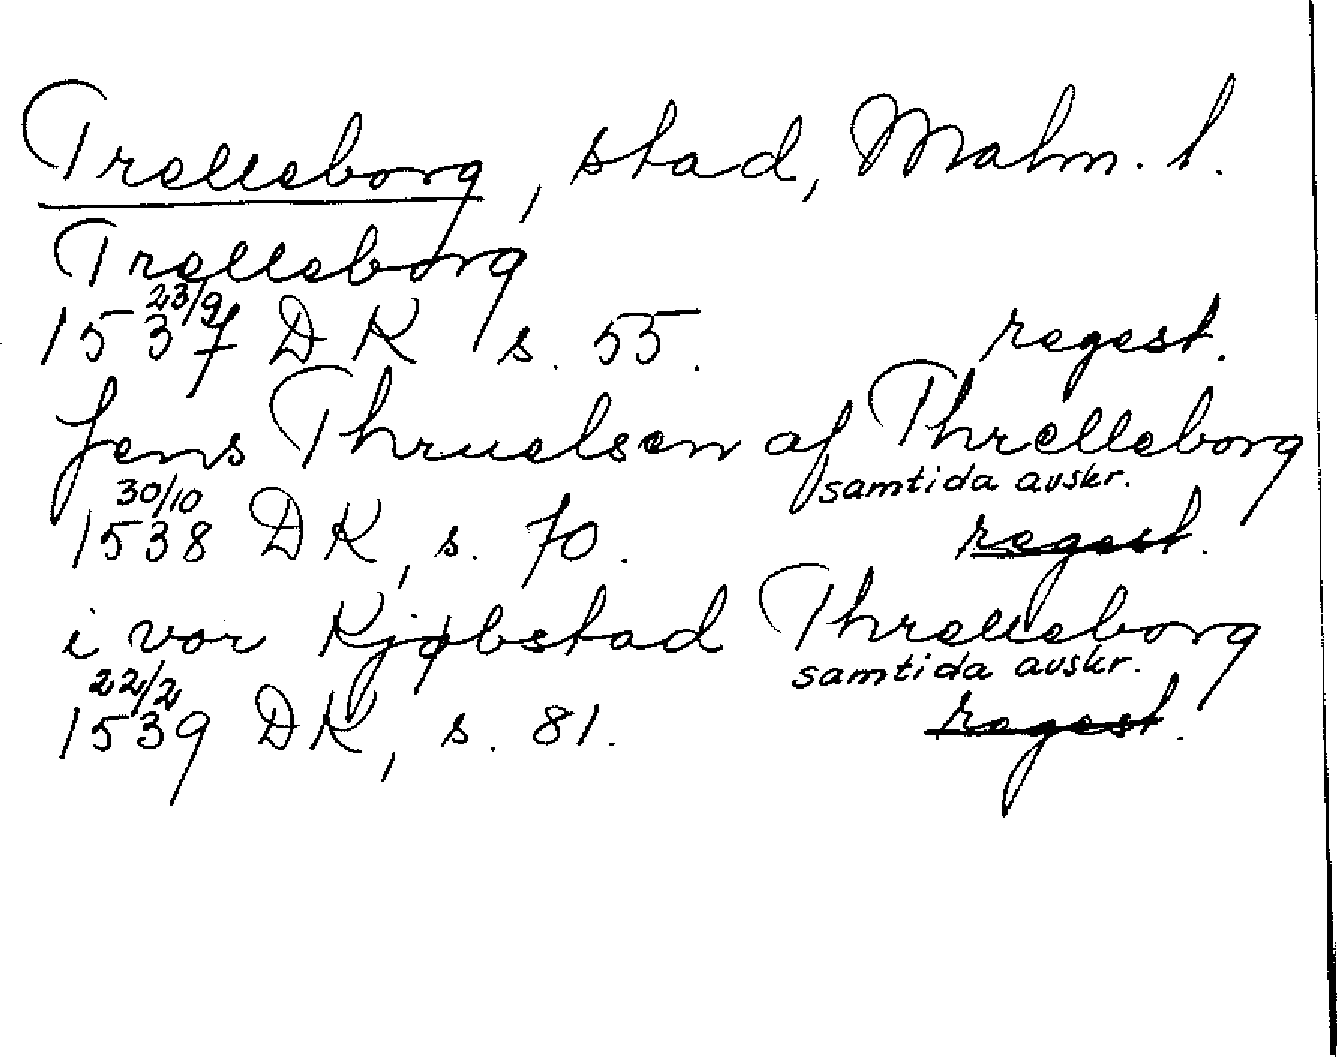 Trelleborg, stad, Malm. l.
Trelleborg
23/9
1537 DK s. 55. regest.
Jens Thruelsen af Threlleborg
30/10 samtida avskr.
1538 DK, s. 70. regest.
i vor Kjøbstad Threlleborg
22/2 samtida avskr.
1539 DK, s. 81. regest.